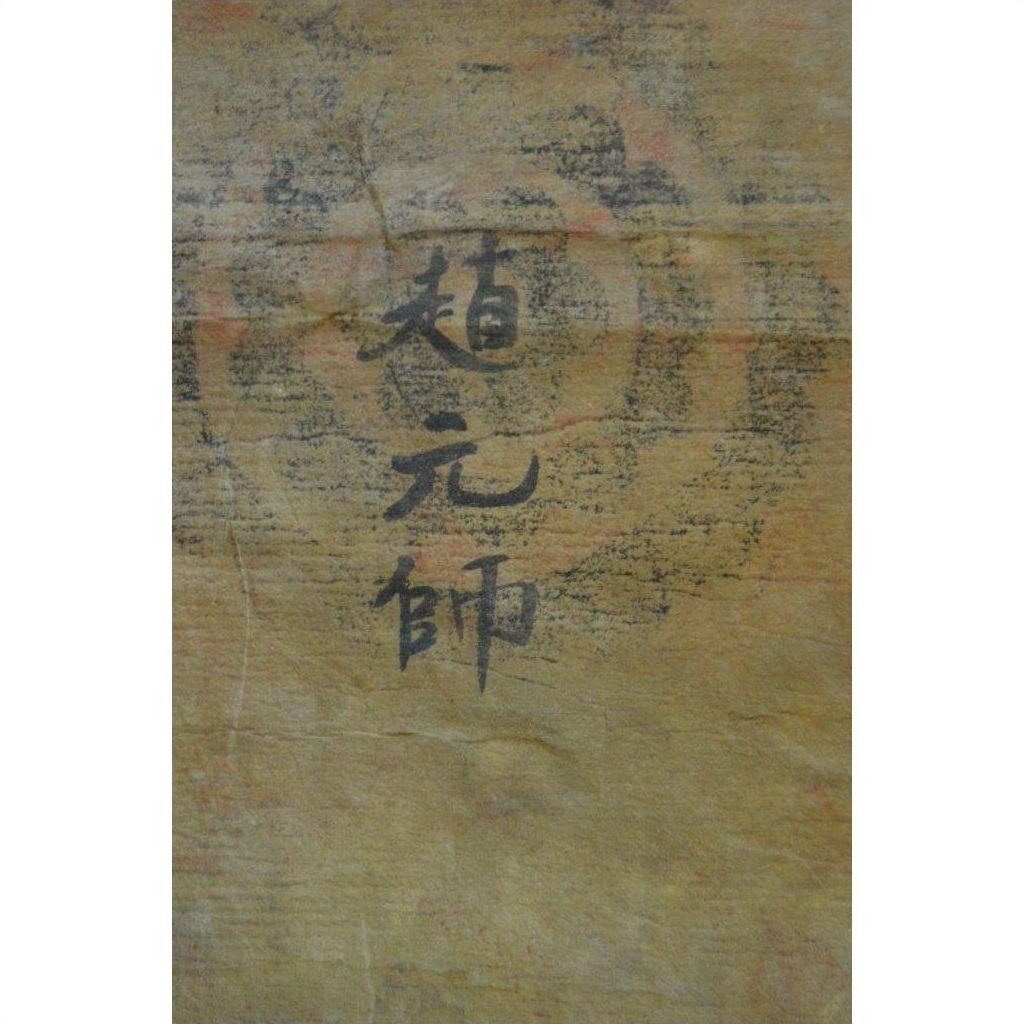 趙
元
師